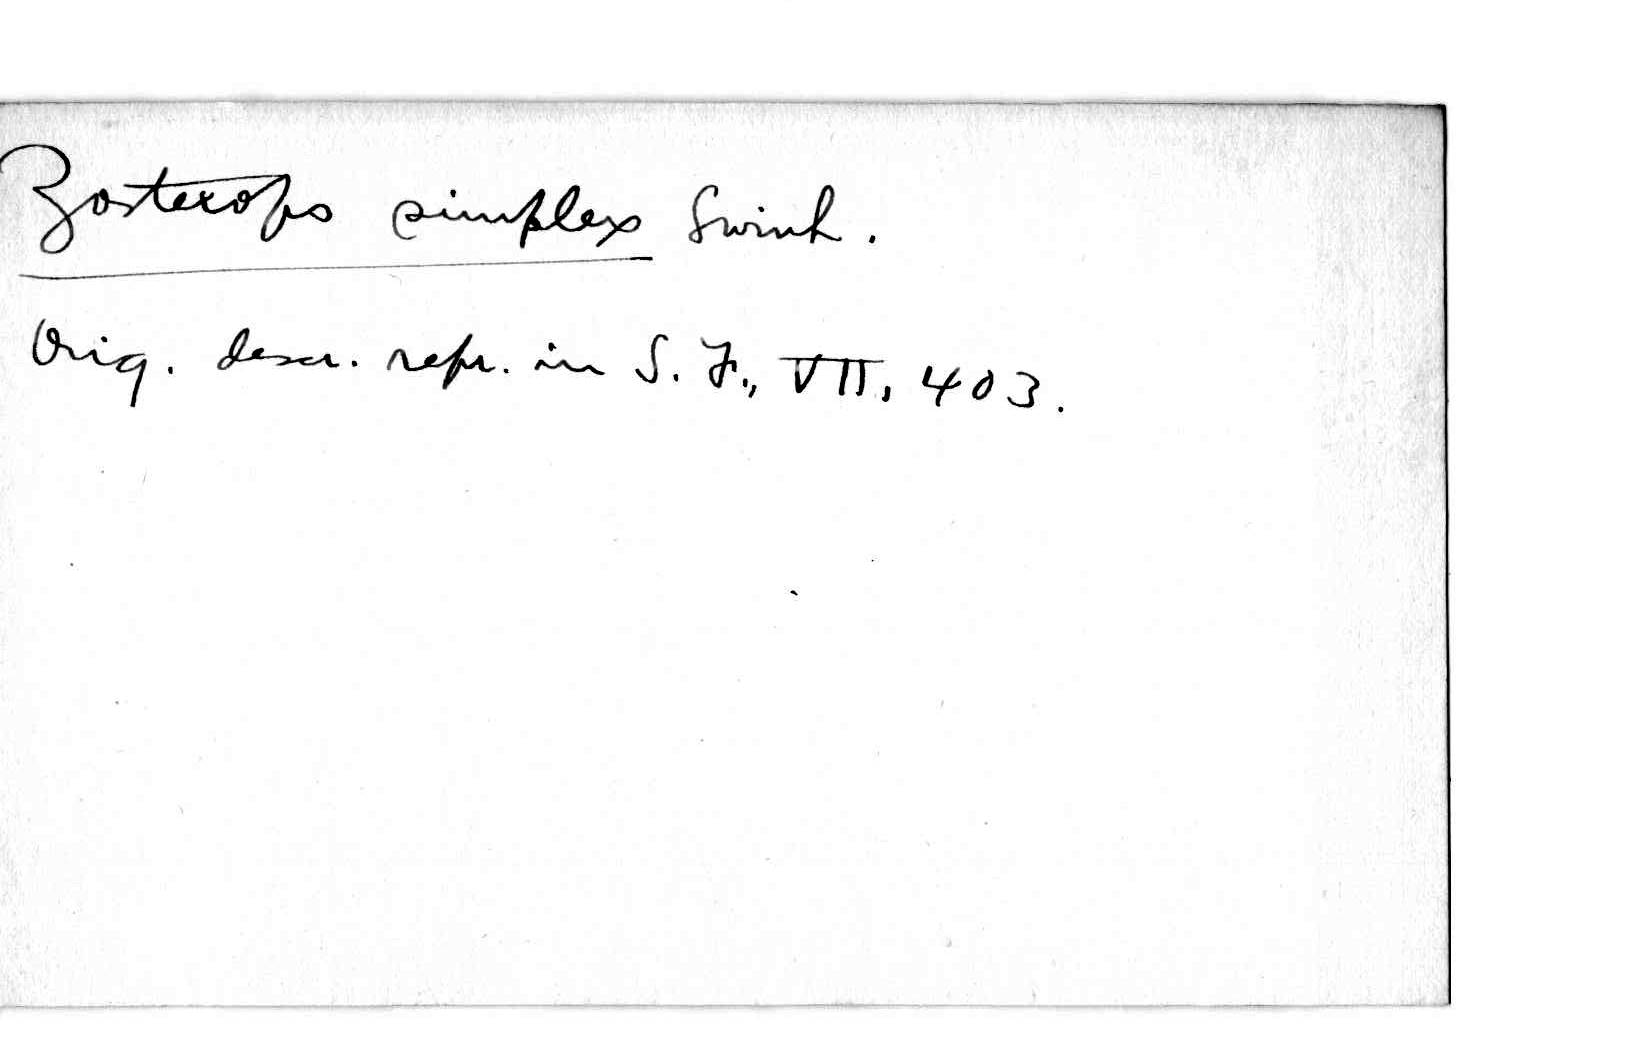 Zosterops simplex Swinh.
Orig. descr. repr. in S. F., VII, 403.